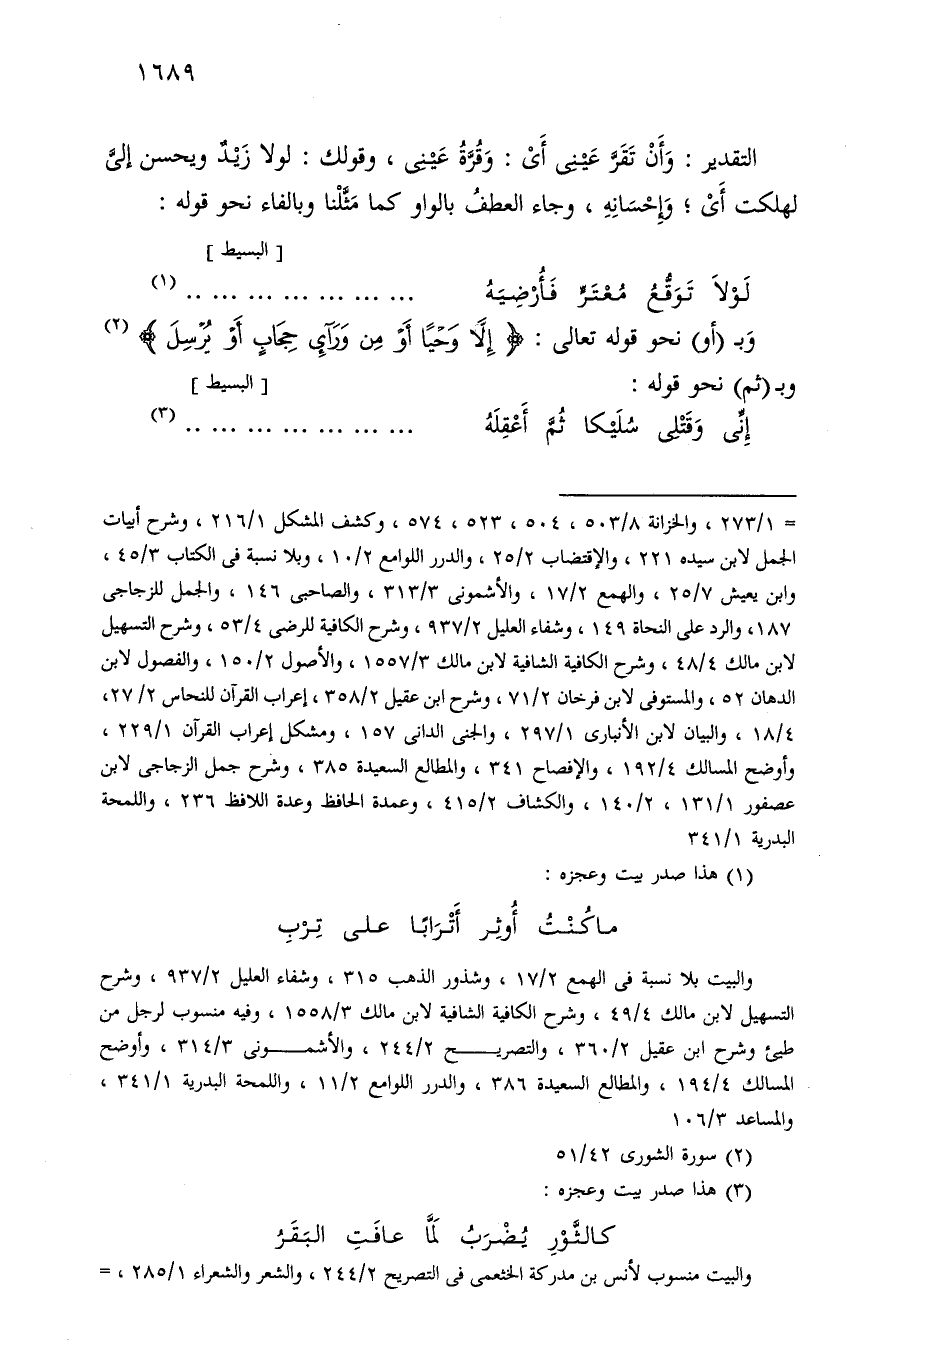 ١٦٨٩
التقدير : وَأَنْ تَقَرَّ عَيْنِى أَىْ : وَقُرَّةُ عَيْنِى ، وقولك : لولا زَيْدٌ ويحسن إلىَّ
لهلكت أَىْ ؛ وَإِحْسَانِهِ ، وجاء العطفُ بالواو كما مَثَّلْنا وبالفاء نحو قوله :
[ البسيط ]
لَوْلاَ تَوَقُّعُ مُعْتَرٍّ فَأُرْضِيَهُ ... ... ... ... ... ... .. (١)
وَبـ (أو) نحو قوله تعالى : ﴿ إِلَّا وَحْيًا أَوْ مِن وَرَآيِ حِجَابٍ أَوْ يُرْسِلَ ﴾ (٢)
وبـ (ثم) نحو قوله : [ البسيط ]
إِنِّى وَقَتْلِى سُلَيْكا ثُمَّ أَعْقِلَهُ ... ... ... ... ... ... .. (٣)
= ٢٧٣/١ ، والخزانة ٥٠٣/٨ ، ٥٠٤ ، ٥٢٣ ، ٥٧٤ ، وكشف المشكل ٢١٦/١ ، وشرح أبيات
الجمل لابن سيده ٢٢١ ، والإقتضاب ٢٥/٢ ، والدرر اللوامع ١٠/٢ ، وبلا نسبة فى الكتاب ٤٥/٣ ،
وابن يعيش ٢٥/٧ ، والهمع ١٧/٢ ، والأشمونى ٣١٣/٣ ، والصاحبى ١٤٦ ، والجمل للزجاجى
١٨٧، والرد على النحاة ١٤٩ ، وشفاء العليل ٩٣٧/٢ ، وشرح الكافية للرضى ٥٣/٤ ، وشرح التسهيل
لابن مالك ٤٨/٤ ، وشرح الكافية الشافية لابن مالك ١٥٥٧/٣ ، والأصول ١٥٠/٢ ، والفصول لابن
الدهان ٥٢ ، والمستوفى لابن فرخان ٧١/٢ ، وشرح ابن عقيل ٣٥٨/٢ ، إعراب القرآن للنحاس ٢/ ٢٧،
١٨/٤ ، والبيان لابن الأنبارى ٢٩٧/١ ، والجنى الدانى ١٥٧ ، ومشكل إعراب القرآن ٢٢٩/١ ،
وأوضح المسالك ١٩٢/٤ ، والإفصاح ٣٤١ ، والمطالع السعيدة ٣٨٥ ، وشرح جمل الزجاجى لابن
عصفور ١٣١/١ ، ١٤٠/٢ ، والكشاف ٤١٥/٢ ، وعمدة الحافظ وعدة اللافظ ٢٣٦ ، واللمحة
البدرية ٣٤١/١
(١) هذا صدر بيت وعجزه :
ماكُنْتُ أُوثِر أَتْرَابًا على تِرْبِ
والبيت بلا نسبة فى الهمع ١٧/٢ ، وشذور الذهب ٣١٥ ، وشفاء العليل ٩٣٧/٢ ، وشرح
التسهيل لابن مالك ٤٩/٤ ، وشرح الكافية الشافية لابن مالك ١٥٥٨/٣ ، وفيه منسوب لرجل من
طيئ وشرح ابن عقيل ٣٦٠/٢ ، والتصريح ٢٤٤/٢ ، والأشمونى ٣١٤/٣ ، وأوضح
المسالك ١٩٤/٤ ، والمطالع السعيدة ٣٨٦ ، والدرر اللوامع ١١/٢ ، واللمحة البدرية ٣٤١/١ ،
والمساعد ١٠٦/٣
(٢) سورة الشورى ٥١/٤٢
(٣) هذا صدر بيت وعجزه :
كالثَّوْرِ يُضْرَبُ لَمَّا عافَتِ البَقَرُ
والبيت منسوب لأنس بن مدركة الخثعمى فى التصريح ٢٤٤/٢ ، والشعر والشعراء ٢٨٥/١ ، =